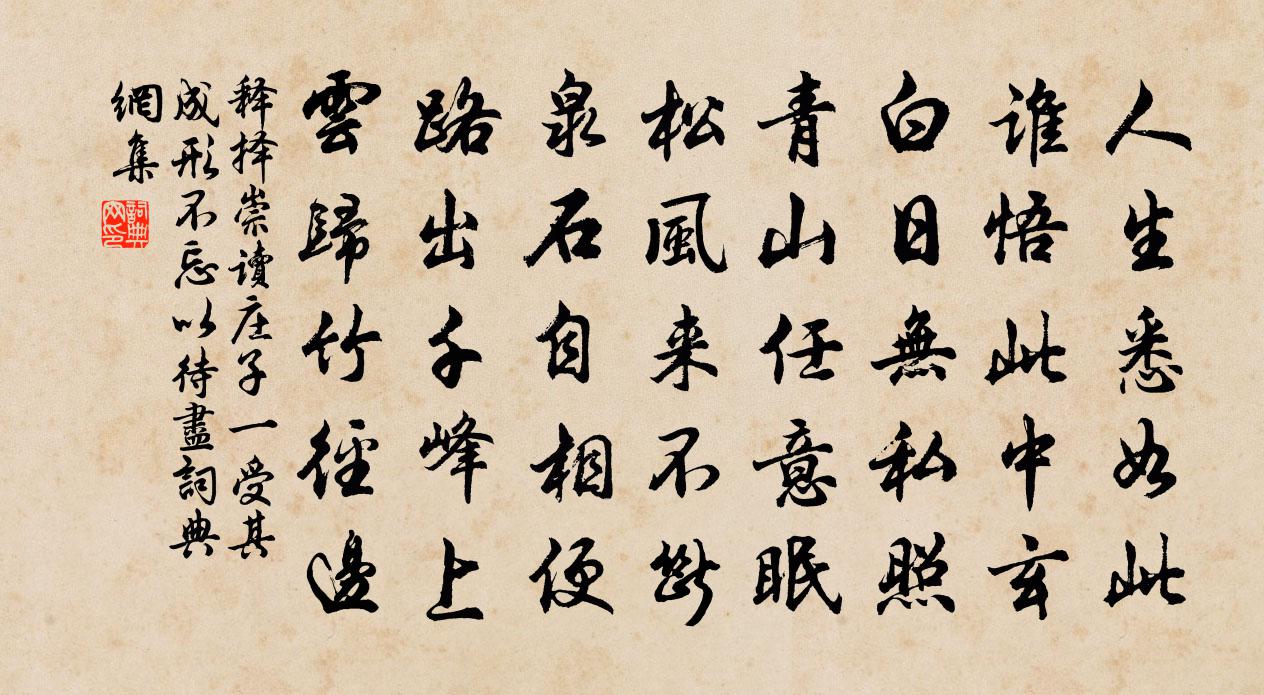 人生悉如此
谁悟此中玄
白日無私照
青山任意眠
松風来不断
泉石自相便
路出千峰上
雲歸竹徑邊
释择崇讀庄子一受其
成形不忘以待盡詞典
網集
詞典
网印